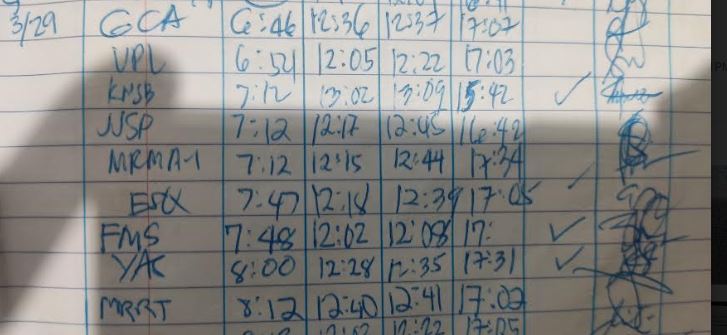 3/29 GCA 6:46 12:36 12:37 17:07
VPL 6:521 12:05 12:22 17:03
KMSB 7:12 13:02 13:09 15:42 ✓
NSP 7:12 12:17 12:45 16:42
MRMA-1 7:12 12:15 12:44 17:34
7:47 12:18 12:39 17:05 ✓
FMS 7:48 12:02 12:08 17: ✓
YAC 8:00 12:28 12:35 17:31 ✓
MRRT 8:12 12:40 12:41 17:02
12:22 17:05